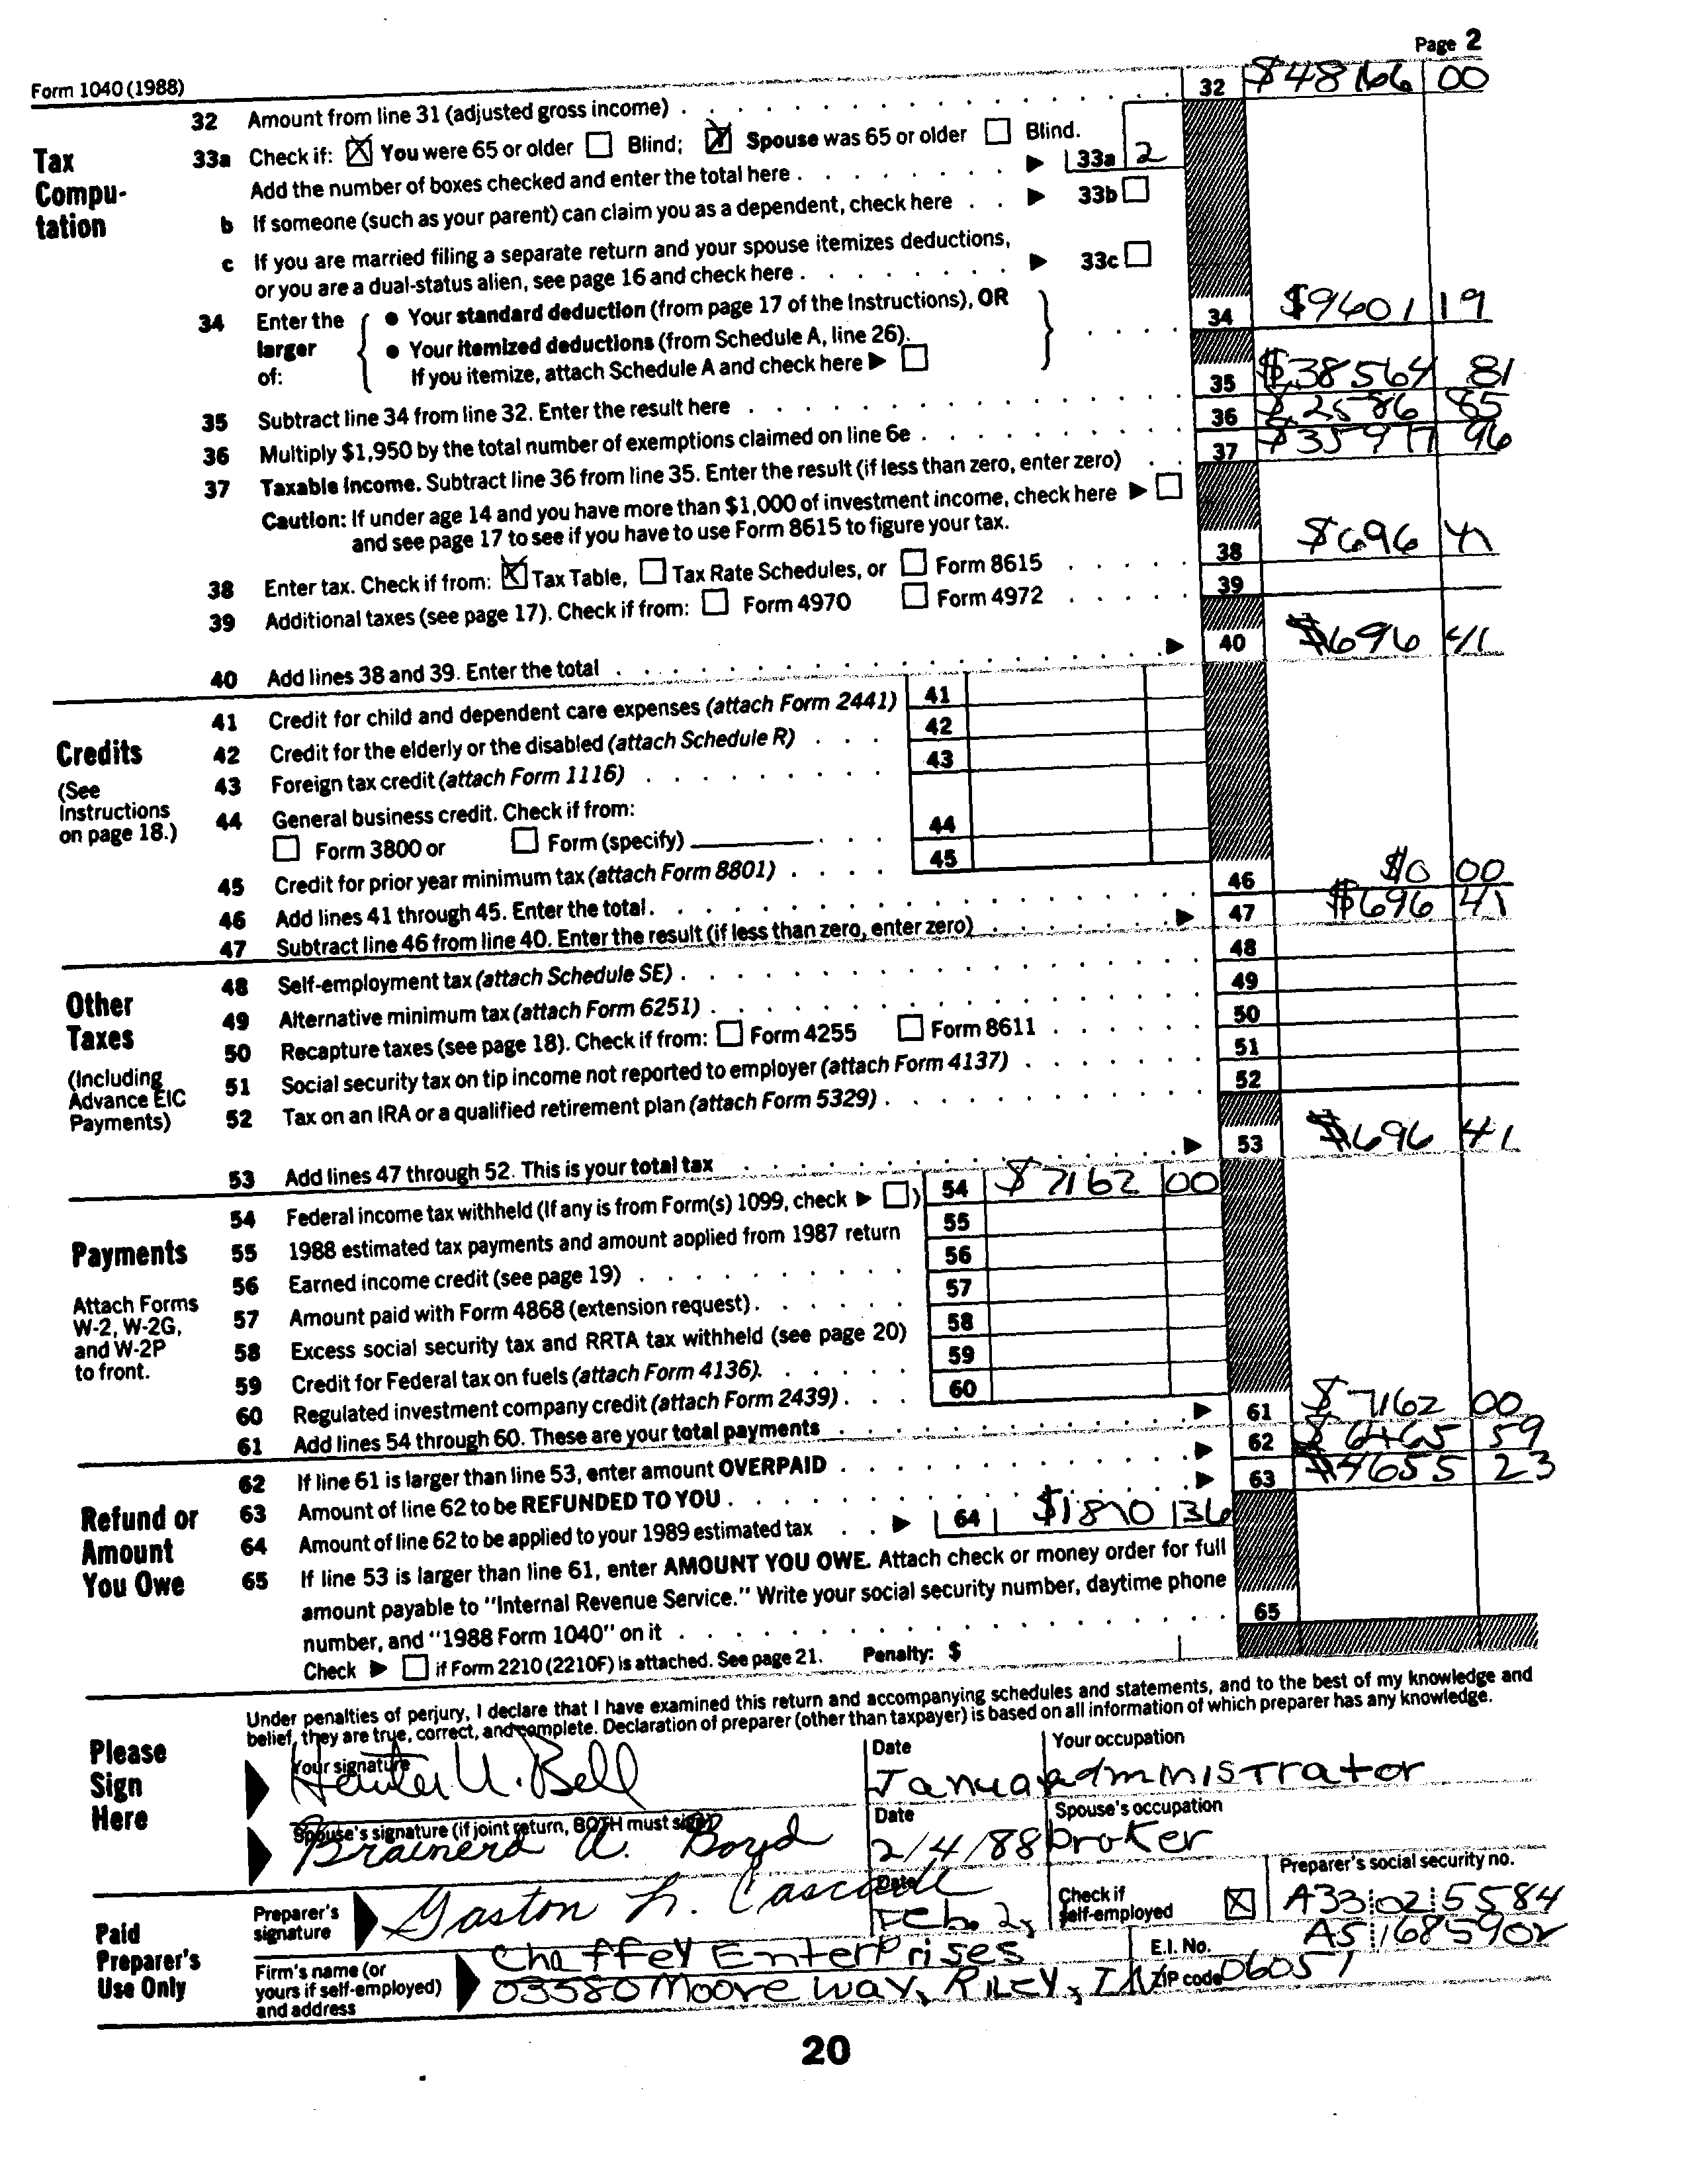 Page 2
Form 1040 (1988)
32 Amount from line 31 (adjusted gross income) 32 $48166 00
Tax Computation
33a Check if: [X] You were 65 or older [ ] Blind; [X] Spouse was 65 or older [ ] Blind.
Add the number of boxes checked and enter the total here 33a 2
b If someone (such as your parent) can claim you as a dependent, check here 33b
c If you are married filing a separate return and your spouse itemizes deductions,
or you are a dual-status alien, see page 16 and check here 33c
34 Enter the larger of: ● Your standard deduction (from page 17 of the Instructions), OR
● Your itemized deductions (from Schedule A, line 26).
If you itemize, attach Schedule A and check here 34 $9601 19
35 Subtract line 34 from line 32. Enter the result here 35 $38564 81
36 Multiply $1,950 by the total number of exemptions claimed on line 6e 36 $2586 85
37 Taxable income. Subtract line 36 from line 35. Enter the result (if less than zero, enter zero) 37 $35977 96
Caution: If under age 14 and you have more than $1,000 of investment income, check here
and see page 17 to see if you have to use Form 8615 to figure your tax.
38 Enter tax. Check if from: [X] Tax Table, [ ] Tax Rate Schedules, or [ ] Form 8615 38 $696 41
39 Additional taxes (see page 17). Check if from: [ ] Form 4970 [ ] Form 4972 39
40 Add lines 38 and 39. Enter the total 40 $696 41
Credits
(See Instructions on page 18.)
41 Credit for child and dependent care expenses (attach Form 2441) 41
42 Credit for the elderly or the disabled (attach Schedule R) 42
43 Foreign tax credit (attach Form 1116) 43
44 General business credit. Check if from:
[ ] Form 3800 or [ ] Form (specify) 44
45 Credit for prior year minimum tax (attach Form 8801) 45
46 Add lines 41 through 45. Enter the total 46 $0 00
47 Subtract line 46 from line 40. Enter the result (if less than zero, enter zero) 47 $696 41
Other Taxes
(Including Advance EIC Payments)
48 Self-employment tax (attach Schedule SE) 48
49 Alternative minimum tax (attach Form 6251) 49
50 Recapture taxes (see page 18). Check if from: [ ] Form 4255 [ ] Form 8611 50
51 Social security tax on tip income not reported to employer (attach Form 4137) 51
52 Tax on an IRA or a qualified retirement plan (attach Form 5329) 52
53 Add lines 47 through 52. This is your total tax 53 $696 41
Payments
Attach Forms W-2, W-2G, and W-2P to front.
54 Federal income tax withheld (If any is from Form(s) 1099, check [ ]) 54 $7162 00
55 1988 estimated tax payments and amount applied from 1987 return 55
56 Earned income credit (see page 19) 56
57 Amount paid with Form 4868 (extension request) 57
58 Excess social security tax and RRTA tax withheld (see page 20) 58
59 Credit for Federal tax on fuels (attach Form 4136) 59
60 Regulated investment company credit (attach Form 2439) 60
61 Add lines 54 through 60. These are your total payments 61 $7162 00
Refund or Amount You Owe
62 If line 61 is larger than line 53, enter amount OVERPAID 62 $6465 59
63 Amount of line 62 to be REFUNDED TO YOU 63 $4655 23
64 Amount of line 62 to be applied to your 1989 estimated tax 64 $1810 36
65 If line 53 is larger than line 61, enter AMOUNT YOU OWE. Attach check or money order for full
amount payable to "Internal Revenue Service." Write your social security number, daytime phone
number, and "1988 Form 1040" on it 65
Check [ ] if Form 2210 (2210F) is attached. See page 21. Penalty: $
Please Sign Here
Under penalties of perjury, I declare that I have examined this return and accompanying schedules and statements, and to the best of my knowledge and
belief, they are true, correct, and complete. Declaration of preparer (other than taxpayer) is based on all information of which preparer has any knowledge.
Your signature U. Bell Date Janua Your occupation administrator
Spouse's signature (if joint return, BOTH must sign) Brainerd A. Boyd Date 2/4/88 Spouse's occupation broker
Paid Preparer's Use Only
Preparer's signature Gaston L. Cascade Date Feb. 2, Check if self-employed [X] Preparer's social security no. A33 02 5584
Firm's name (or yours if self-employed) and address Chaffey Enterprises E.I. No. AS 1685902
03580 Moore Way, Riley, ZIP code 06051
20